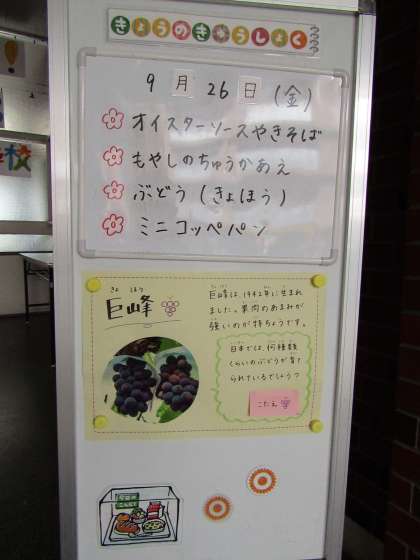 きょうのきゅうしょく
9月26日(金)
オイスターソースやきそば
もやしのちゅうかあえ
ぶどう(きょほう)
ミニコッペパン
きょ ほう
巨峰
巨峰は、1942年に生まれ
ました。果肉のあまみが
強いのが特ちょうです。
日本では、何種類
くらいのぶどうが育て
られているでしょう?
こたえ
校